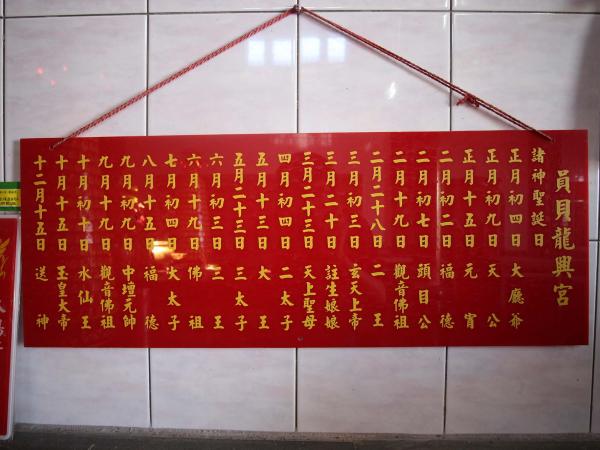 員貝龍興宮
諸神聖誕日
正月初四日 大廳爺
正月初九日 天公
正月十五日 元宵
二月初二日 福德
二月初七日 頭目公
二月十九日 觀音佛祖
二月二十八日 二王
三月初三日 玄天上帝
三月二十日 註生娘娘
三月二十三日 天上聖母
四月初四日 二太子
五月十三日 大王
五月二十三日 三太子
六月初三日 三王
六月十九日 佛祖
七月初四日 大太子
八月十五日 福德
九月初九日 中壇元帥
九月十九日 觀音佛祖
十月初十日 水仙王
十月十五日 玉皇大帝
十二月十五日 送神